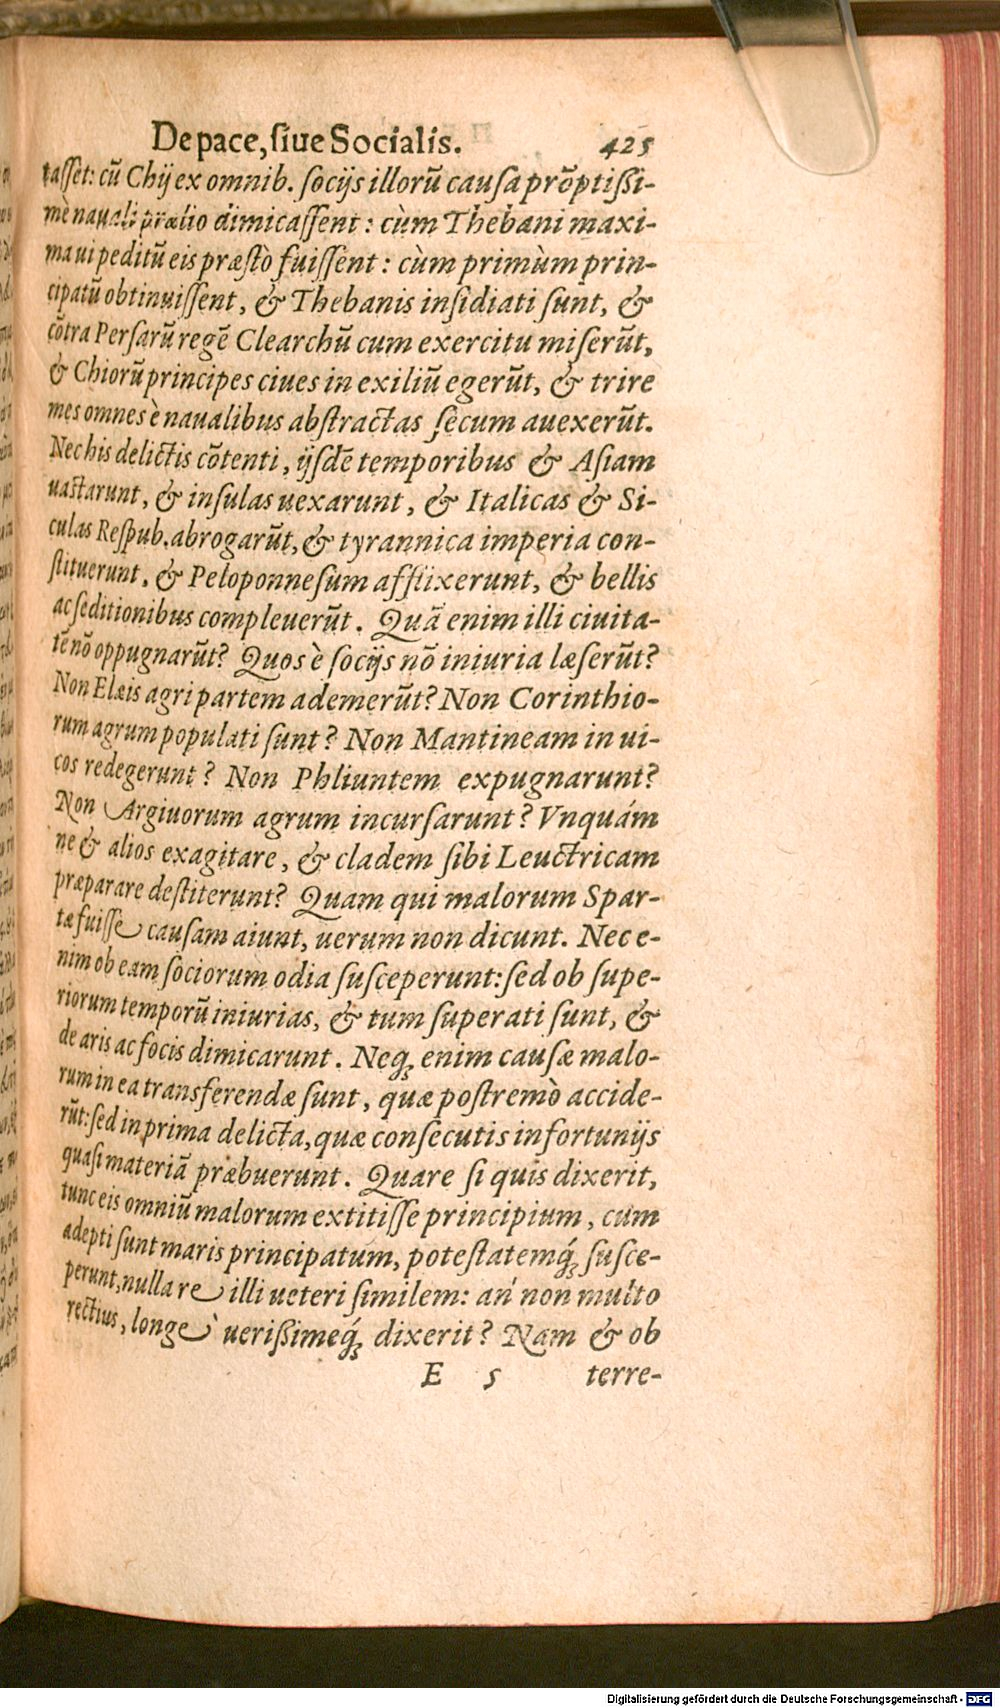 De pace, ſiue Socialis. 425
taſſet: cū Chij ex omnib. ſocijs illorū cauſa prōptiſsi-
mè nauali prælio dimicaſſent : cùm Thebani maxi-
ma ui peditū eis præſtò fuiſſent : cùm primùm prin-
cipatū obtinuiſſent, & Thebanis inſidiati ſunt, &
cōtra Perſarū regē Clearchū cum exercitu miſerūt,
& Chiorū principes ciues in exiliū egerūt, & trire
mes omnes è naualibus abſtractas ſecum auexerūt.
Nec his delictis cōtenti, ijſdē temporibus & Aſiam
uaſtarunt, & inſulas uexarunt, & Italicas & Si-
culas Reſpub. abrogarūt, & tyrannica imperia con-
ſtituerunt, & Peloponneſum afflixerunt, & bellis
ac ſeditionibus compleuerūt. Quā enim illi ciuita-
tē nō oppugnarūt? Quos è ſocijs nō iniuria læſerūt?
Non Elæis agri partem ademerūt? Non Corinthio-
rum agrum populati ſunt? Non Mantineam in ui-
cos redegerunt? Non Phliuntem expugnarunt?
Non Argiuorum agrum incurſarunt? Vnquám
ne & alios exagitare, & cladem ſibi Leuctricam
præparare deſtiterunt? Quam qui malorum Spar-
tæ fuiſſe cauſam aiunt, uerum non dicunt. Nec e-
nim ob eam ſociorum odia ſuſceperunt: ſed ob ſupe-
riorum temporū iniurias, & tum ſuperati ſunt, &
de aris ac focis dimicarunt. Neq; enim cauſæ malo-
rum in ea transferendæ ſunt, quæ poſtremò accide-
rūt: ſed in prima delicta, quæ conſecutis infortunijs
quaſi materiā præbuerunt. Quare ſi quis dixerit,
tunc eis omniū malorum extitiſſe principium, cum
adepti ſunt maris principatum, poteſtatemq́; ſuſce-
perunt, nulla re illi ueteri ſimilem: an' non multo
rectius, longe' ueriſsimeq́; dixerit? Nam & ob
E 5 terre-
Digitalisierung gefördert durch die Deutsche Forschungsgemeinschaft - DFG